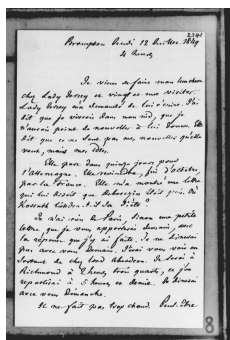 2341
Brompton Jeudi 12 Juillet 1849
2 heures
Je viens de faire mon luncheon
chez Lady Jersey et
Lady Jersey m'a demandé de lui écrire. J'ai
dit que je vivois dans mon nid, que je
n'aurois point de nouvelles à lui donner. Elle
dit que ce ne sont pas mes nouvelles qu'elle
veut, mais mes idées.
Elle part dans quinze jours pour
l'Allemagne. Elle reviendra, fin d'octobre,
par la France. Elle m'a montré une lettre
qui lui disoit que étoit pris. Où
Kossuth
Je n'ai rien de Paris, sinon une petite
lettre que je vous apporterai demain, avec
la réponse que j'y ai faite. Je ne dinerai
pas avec vous demain. J'irai vous voir en
sortant de chez lord Aberdeen. Je serai à
Richmond à 2 heures trois quarts, et j'en
repartirai à 5 heures et demie. Je dinerai
avec vous Dimanche.
Il ne fait pas trop chaud. Peut-être
8